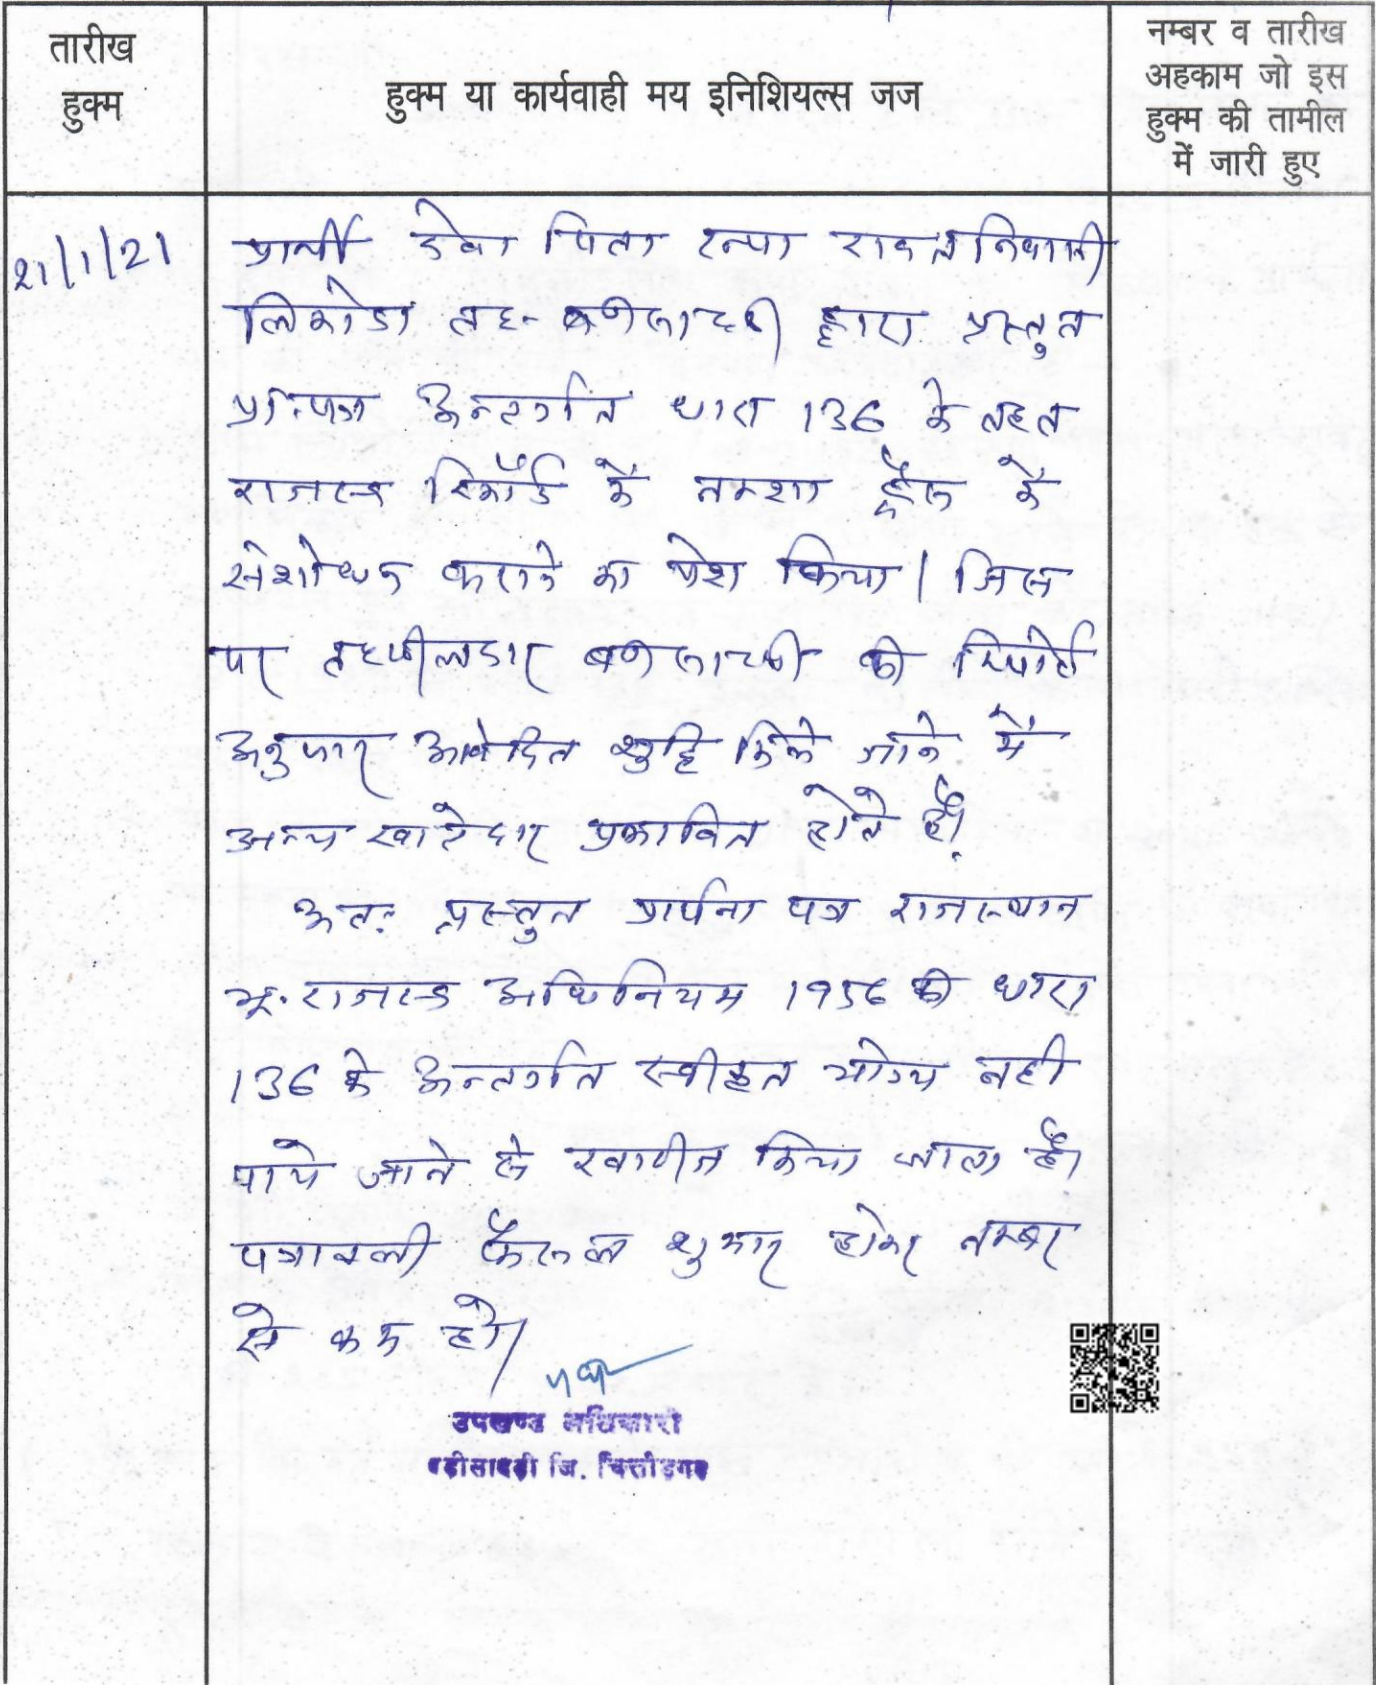 तारीख
हुक्म
हुक्म या कार्यवाही मय इनिशियल्स जज
नम्बर व तारीख
अहकाम जो इस
हुक्म की तामील
में जारी हुए
21/1/21
प्रार्थी देवा पिता रावत निवासी
तह- बडीसादडी द्वारा प्रस्तुत
प्रा.पत्र अन्तर्गत धारा 136 के तहत
राजस्व रिकॉर्ड के नक्शा ट्रेस के
संशोधन कराने का पेश किया। जिस
पर तहसीलदार बडीसादडी की रिपोर्ट
अनुसार आवेदित शुद्धि किये जाने में
अन्य खातेदार प्रभावित होते है।
अतः प्रस्तुत प्रार्थना पत्र राजस्थान
भू.राजस्व अधिनियम 1956 की धारा
136 के अन्तर्गत स्वीकृत योग्य नही
पाये जाने से खारीज किया जाता है।
पत्रावली फैसल शुमार होकर नम्बर
से कम हो।
उपखण्ड अधिकारी
बड़ीसादड़ी जि. चित्तौड़गढ़